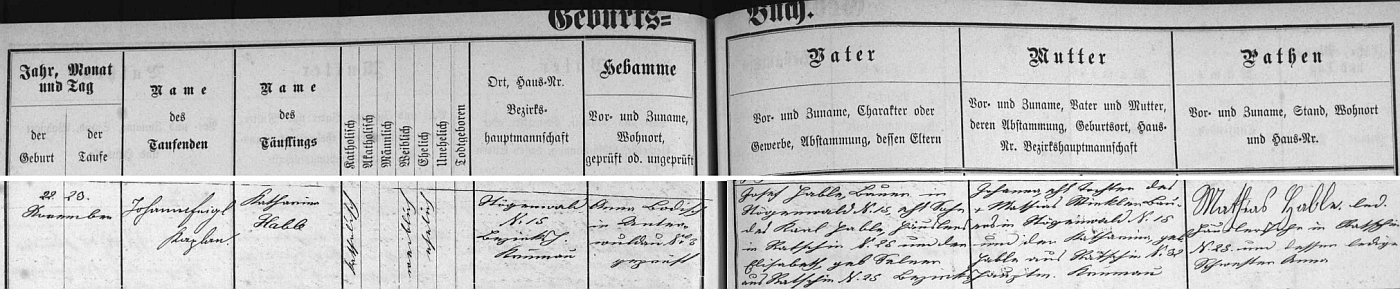 Geburts=
Buch.
Jahr, Monat
und Tag
der
Geburt
der
Taufe
Name
des
Taufenden
Name
des
Täuflings
Katholisch
Akatholisch
Männlich
Weiblich
Ehelich
Unehelich
Todtgeboren
Ort, Haus-Nr.
Bezirks-
hauptmannschaft
Hebamme
Vor- und Zuname,
Wohnort,
geprüft od. ungeprüft
Vater
Vor- und Zuname, Charakter oder
Gewerbe, Abstammung, dessen Eltern
Mutter
Vor- und Zuname, Vater und Mutter,
deren Abstammung, Geburtsort, Haus-
Nr. Bezirkshauptmannschaft
Pathen
Vor- und Zuname, Stand, Wohnort
und Haus-Nr.
22. 23.
November
Johann Feigl
Kaplan
Katharina
Hable
Stögenwald
N. 15
Bezirksh.
Krumau
Anna
in Unter
wuldau N.
geprüft
Josef Hable, Bauer in
Stögenwald N. 15, ehl. Sohn
des Karl Hable, Häuslers
in Ratschin N. 28 und der
Elisabeth, geb.
aus Ratschin N. 25 Bezirks
Johanna, ehl. Tochter des
+ Mathias Winkler, Bau-
ers in Stögenwald N. 15
und der Katharina, geb.
Hable aus Ratschin N. 32
hauptm. Krumau
Mathias Hable, led.
Häuslerssohn in Ratschin
N. 28. und dessen ledige
Schwester Anna